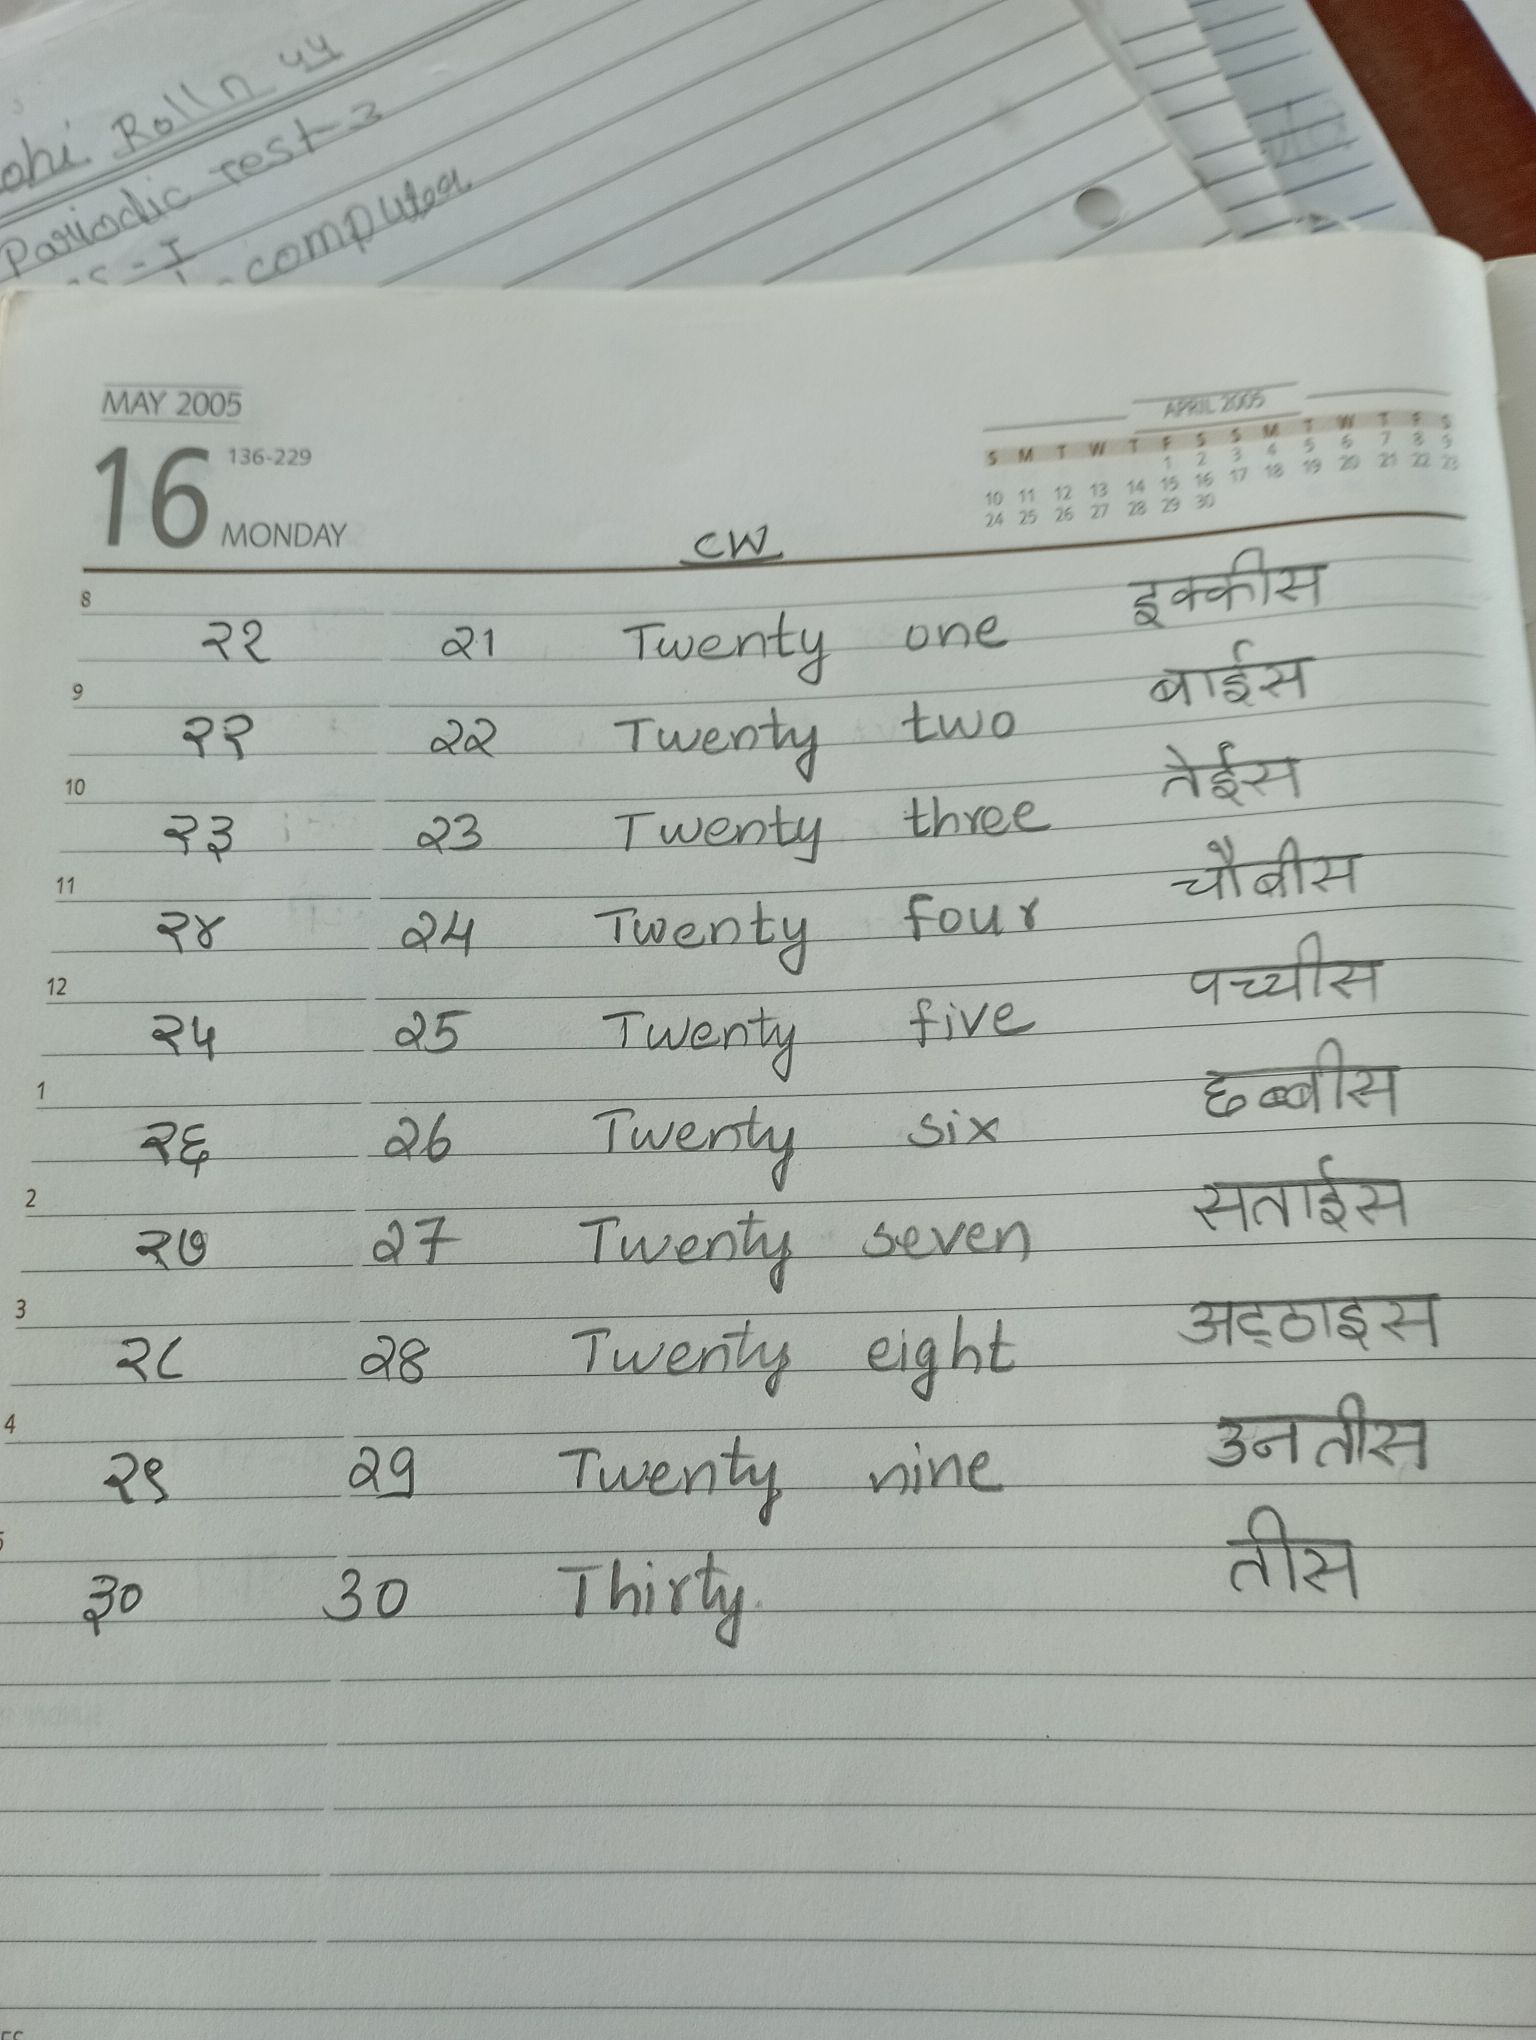 Rolln 44
Pariodic Test-3
computer
MAY 2005
16 136-229
MONDAY
APRIL 2005
S M T W T F S S M T W T F S
1 2 3 4 5 6 7 8 9
10 11 12 13 14 15 16 17 18 19 20 21 22 23
24 25 26 27 28 29 30
CW
8
२१ 21 Twenty one इक्कीस
9
२२ 22 Twenty two बाईस
10
२३ 23 Twenty three तेईस
11
२४ 24 Twenty four चौबीस
12
२५ 25 Twenty five पच्चीस
1
२६ 26 Twenty six छब्बीस
2
२७ 27 Twenty seven सताईस
3
२८ 28 Twenty eight अट्ठाइस
4
२९ 29 Twenty nine उनतीस
5
३० 30 Thirty. तीस